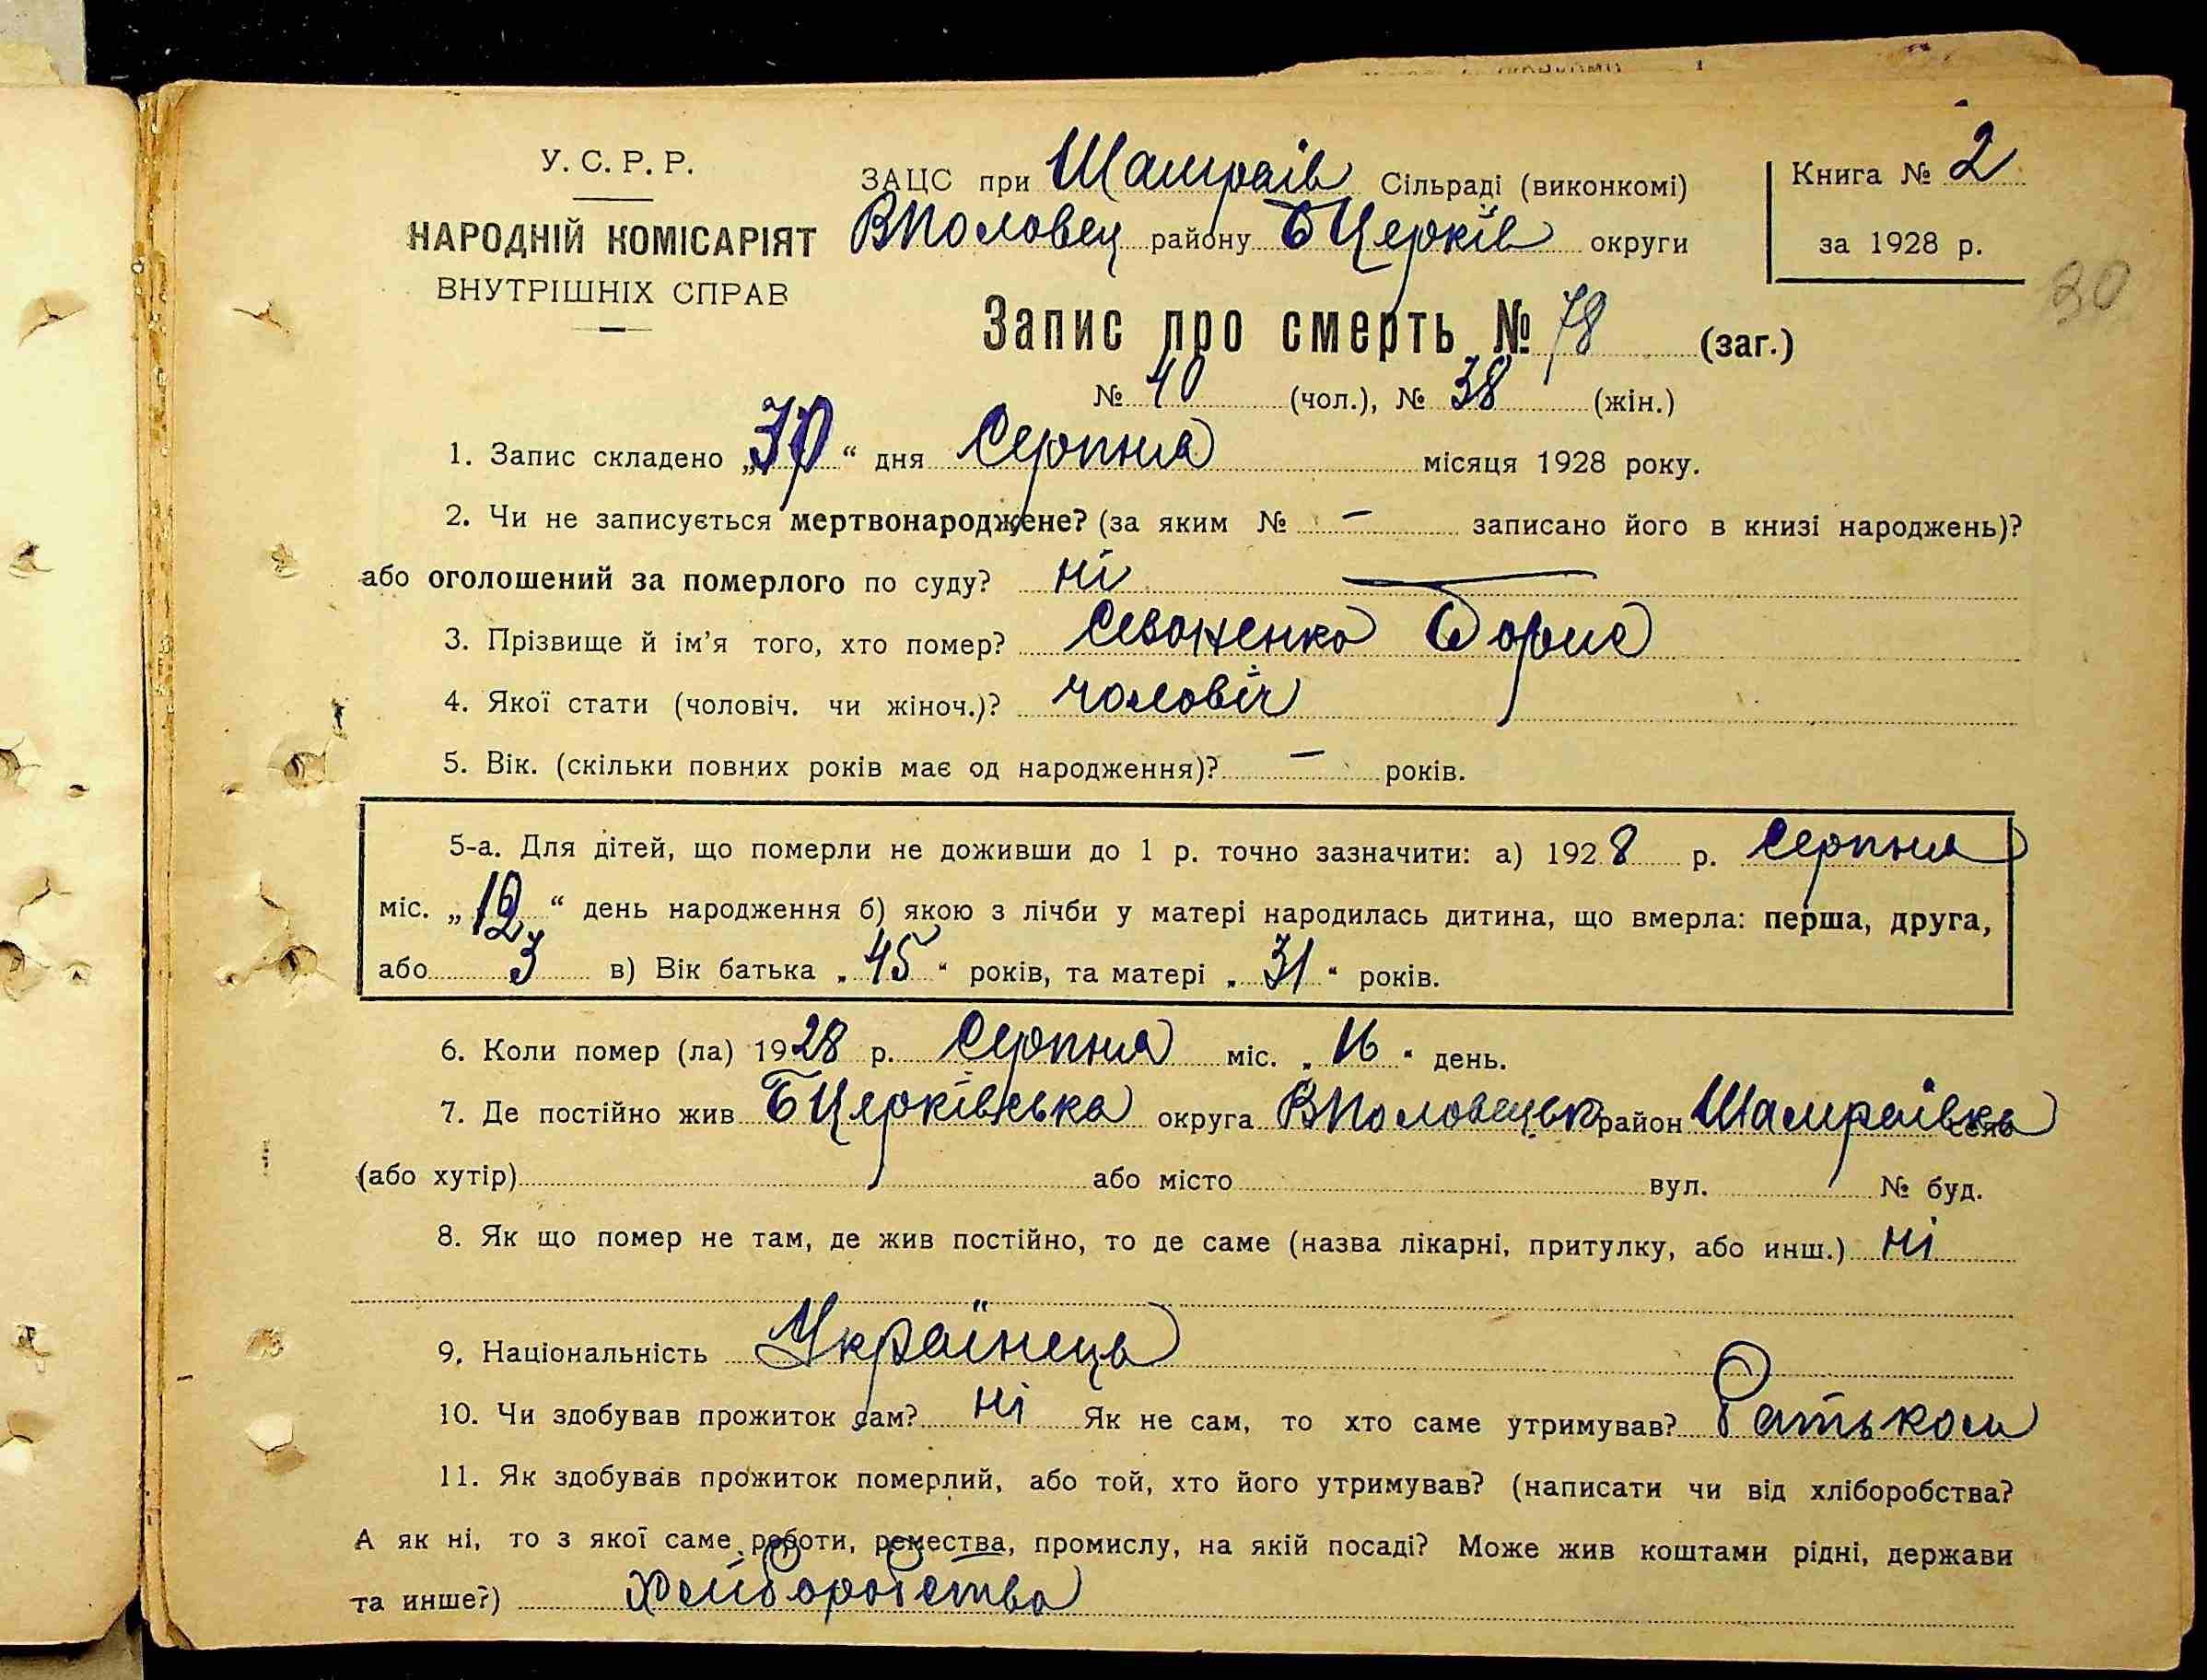 У. С. Р. Р.
НАРОДНІЙ КОМІСАРІЯТ
ВНУТРІШНІХ СПРАВ
ЗАЦС при Шамраїв Сільраді (виконкомі)
ВПоловец району БЦерків округи
Книга № 2
за 1928 р.
30
Запис про смерть № 78 (заг.)
№ 40 (чол.), № 38 (жін.)
1. Запис складено „30“ дня Серпня місяця 1928 року.
2. Чи не записується мертвонароджене? (за яким № – записано його в книзі народжень)?
або оголошений за померлого по суду? ні —
3. Прізвище й ім'я того, хто помер? Сівоненко Борис
4. Якої стати (чоловіч. чи жіноч.)? чоловіч
5. Вік. (скільки повних років має од народження)? – років.
5-а. Для дітей, що померли не доживши до 1 р. точно зазначити: а) 1928 р. Серпня
міс. „12“ день народження б) якою з лічби у матері народилась дитина, що вмерла: перша, друга,
або 3 в) Вік батька „45“ років, та матері „31“ років.
6. Коли помер (ла) 1928 р. Серпня міс. „16“ день.
7. Де постійно жив БЦерківська округа ВПоловецьк район Шамраївка село
(або хутір) або місто вул. № буд.
8. Як що помер не там, де жив постійно, то де саме (назва лікарні, притулку, або инш.) ні
9. Національність Українець
10. Чи здобував прожиток сам? ні Як не сам, то хто саме утримував? Батьком
11. Як здобував прожиток померлий, або той, хто його утримував? (написати чи від хліборобства?
А як ні, то з якої саме роботи, ремества, промислу, на якій посаді? Може жив коштами рідні, держави
та инше?) Хліборобства